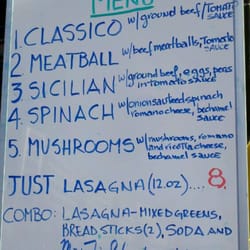 MENU
1. CLASSICO w/ground beef/Tomato SAUCE
2 MEATBALL w/beef meatballs, Tomato SAUCE
3. SICILIAN w/ground beef, eggs, peas in tomato sauce
4. SPINACH w/onion sauteed spinach romano cheese, bechamel SAUCE
5. MUSHROOMS w/mushrooms, romano and ricotta cheese, bechamel sauce
JUST LASAGNA (12.oz)....8.
COMBO: LASAGNA-MIXED GREENS,
BREAD STICKS (2), SODA AND